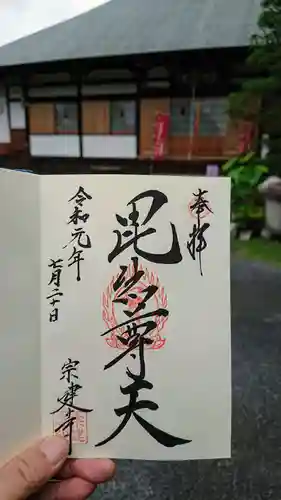 奉拝
毘沙尊天
令和元年
七月二十日
宗建寺